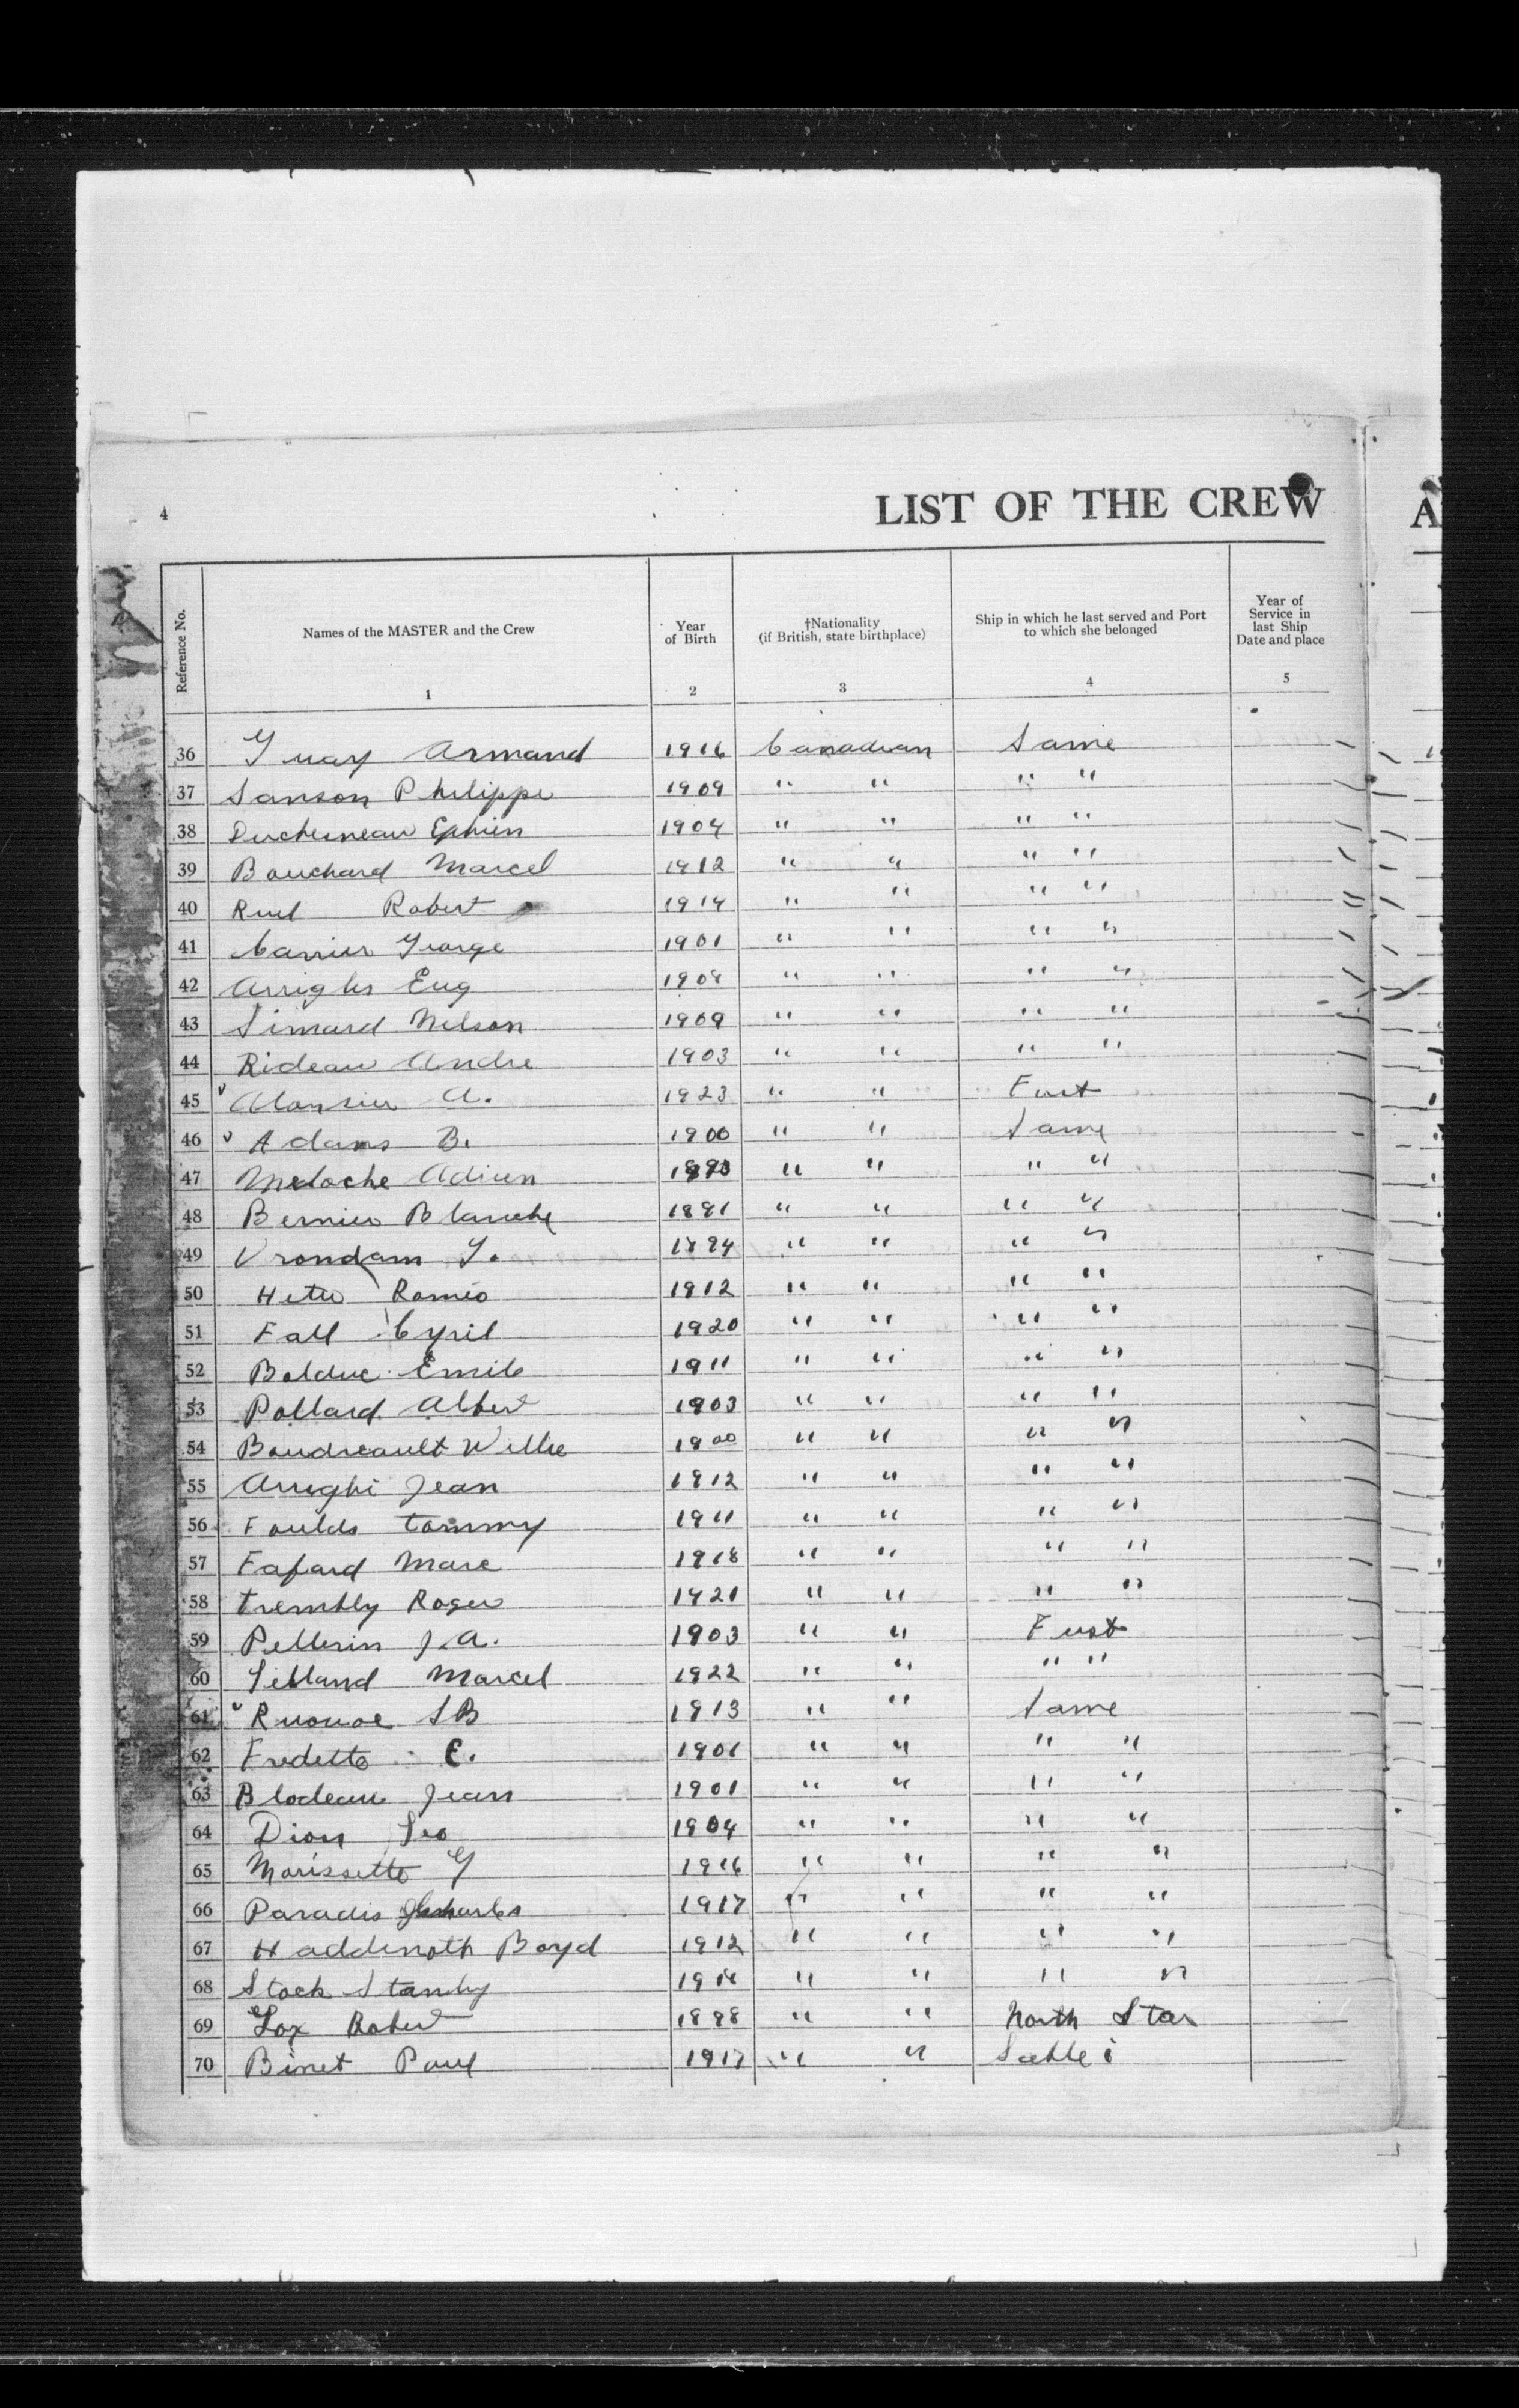 4
LIST OF THE CREW
A
Reference No.
Names of the MASTER and the Crew
1
Year of Birth
2
†Nationality
(if British, state birthplace)
3
Ship in which he last served and Port to which she belonged
4
Year of Service in last Ship Date and place
5
36 Guay Armand 1916 Canadian Same
37 Sanson Philippe 1909 " " " "
38 Duchesneau Ephrien 1904 " " " "
39 Bouchard Marcel 1912 " " " "
40 Ruel Robert 1914 " " " "
41 Carrier George 1901 " " " "
42 Arrighi Eug 1908 " " " "
43 Simard Nelson 1909 " " " "
44 Rideau Andre 1903 " " " "
45 A. 1923 " " First
46 Adams B. 1900 " " Same
47 Meloche Adrien " " " "
48 Bernier Blanche 1881 " " " "
49 Vrondam 1894 " " " "
50 Hetu Romeo 1912 " " " "
51 Fall Cyril 1920 " " " "
52 Bolduc Emile 1911 " " " "
53 Pollard Albert 1903 " " " "
54 Boudreault Willie 1900 " " " "
55 Arreghi Jean 1912 " " " "
56 Foulds Tommy 1911 " " " "
57 Fafard Marc 1918 " " " "
58 Trembly Roger 1921 " " " "
59 Pellerin J.A. 1903 " " First
60 Marcel 1922 " " " "
61 S B 1913 " " Same
62 Fredette E. 1901 " " " "
63 Blodeau Jean 1901 " " " "
64 Dion Leo 1904 " " " "
65 Morissette G 1916 " " " "
66 Paradis Charles 1917 " " " "
67 Haddinoth Boyd 1912 " " " "
68 Stock Stanley " " " "
69 Robert 1898 " " North Star
70 Binet Paul 1917 " " Sable i